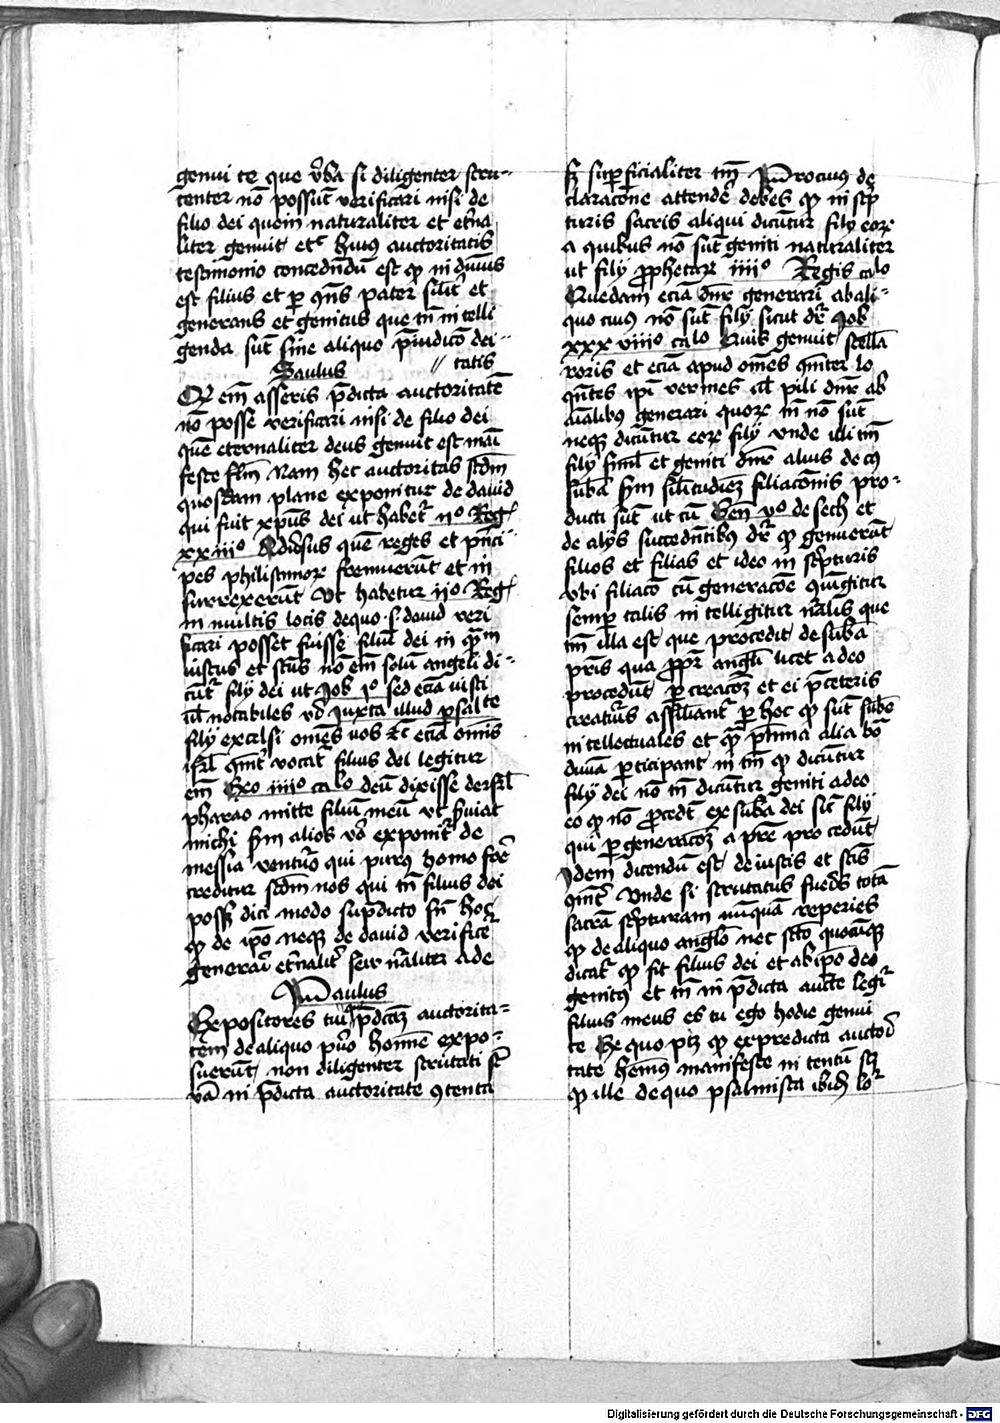 genui te que v̓ba si diligenter scru-
tenter nō possūt verificari nisi de
filio dei quem naturaliter et et̓na
liter genuit etc̄ huius auctoritatis
testimonio concedendū est qꝫ in diuinis
est filius et ꝑ 9ns pater silit̓ et
generans et genitus que tn̄ intelli
genda sūt sine aliquo p̄iudicio dei-
tatis
Saulus
Qꝫ em̄ asseris p̄dicta auctoritatē
nō posse verificari nisi de filio dei
quē eternaliter deus genuit est māi
feste flm̄ Nam hec auctoritas scdm̄
quosdam plane exponitur de dauid
qui fuit xp̄us dei ut habet̓ iiº Reg̓
xxiiiº Adūsus quē reges et p̓nci-
pes philistinoꝝ fremuerūt et in
surrexerūt Vt habetur iiº Reg̓
in multis locis de quo s. dauid veri
ficari posset fuisse filiū dei in qᷓm
iustus et sc̄us nō em̄ solū angeli di-
cūt̓ filij dei ut Job jº sed eciā iusti
ul̄ notabiles vō Juxta illud psalte
filij excelsi om̄es uos etc̄ eciā om̄is
isrl̄ 9nit̓ vocat̓ filius dei legitur
em̄ Exo iiiiº calo deū dixisse de isrl̄
pharao mitte filiū meū vt s̓uiat
michi sm̄ alios vō exponit̓ de
messia venturo qui purus homo fore
creditur scdm̄ nos qui tn̄ filius dei
possꝫ dici modo sup̄dicto sꝫ hoc
qꝫ de ip̄o neqꝫ de dauid verifice
generari et̓nalit̓ seu nāliter a de
Paulus
Expositores tui p̄dc̄aꝫ auctorita-
tem de aliquo puro homine expo-
suerūt, non diligenter scrutati su̓
vba in p̄dicta auctoritate 9tenta
sꝫ suꝑficialiter tm̄ Pro cuius de
claracōne attendē debes qꝫ in sc̓p
turis sacris aliqui dicūtur filij eoꝝ
a quibus nō sūt geniti naturaliter
ut filij ꝓphetaꝝ iiiiº Regis calo
Quedam eciā dn̄r generari ab ali-
quo cuius nō sūt filij sicut dr̄ Job
xxxviiiº calo Quis genuit stellā
roris et eciā apud om̄es 9niter lo
quētes ip̄i vermes ul̄ pili dn̄r ab
aīalibus generari quoꝝ tn̄ nō sūt
neqꝫ dicūtur eoꝝ filij vnde illi tm̄
filij siml̄ et geniti dn̄r alius de cꝰ
sub̄a sm̄ similitudineꝫ filiacōnis pro-
ducti sūt ut cū Gen̄ vº de sech et
de alijs succedētibꝰ dr̄ qꝫ genuerūt
filios et filias et ideo in sc̓pturis
vbi filiacō cū generacōe 9iūgitur
semꝑ talis intelligitur nālis que
tm̄ illa est que procedit de sub̄a
pr̄is qua ꝓpt̓ angeli licet a deo
procedūt ꝑ creacōꝫ et ei p̄ceteris
creatur̓s assilīant̓ ꝑ hoc qꝫ sūt sub̄e
intellectuales et qᷓ plurima alia bō
diuīa ꝑticipant in tm̄ qꝫ dicūtur
filij dei nō tn̄ dicūtur geniti a deo
eo qꝫ nō ꝓcedūt ex sub̄a dei sic̓ filij
qui ꝑ generacōꝫ a pr̄e procedūt,
Idem dicendū est de iustis et sc̄is
9nit̓ Vnde si scrutatus fueris totā
sacrā sc̓pturam nūquā reperies
qꝫ de aliquo anglo nec sc̄to quocūqꝫ
dicat̓ qꝫ sit filius dei et ab ip̄o deo
genitꝰ et tn̄ in p̄dicta aucte legit̓
filius meus es tu ego hodie genui
te Ex quo ptꝫ qꝫ ex predicta auctori
tate hēmus manifeste intentū scꝫ
qꝫ ille de quo psalmista ibidē loq̓
Digitalisierung gefördert durch die Deutsche Forschungsgemeinschaft - DFG